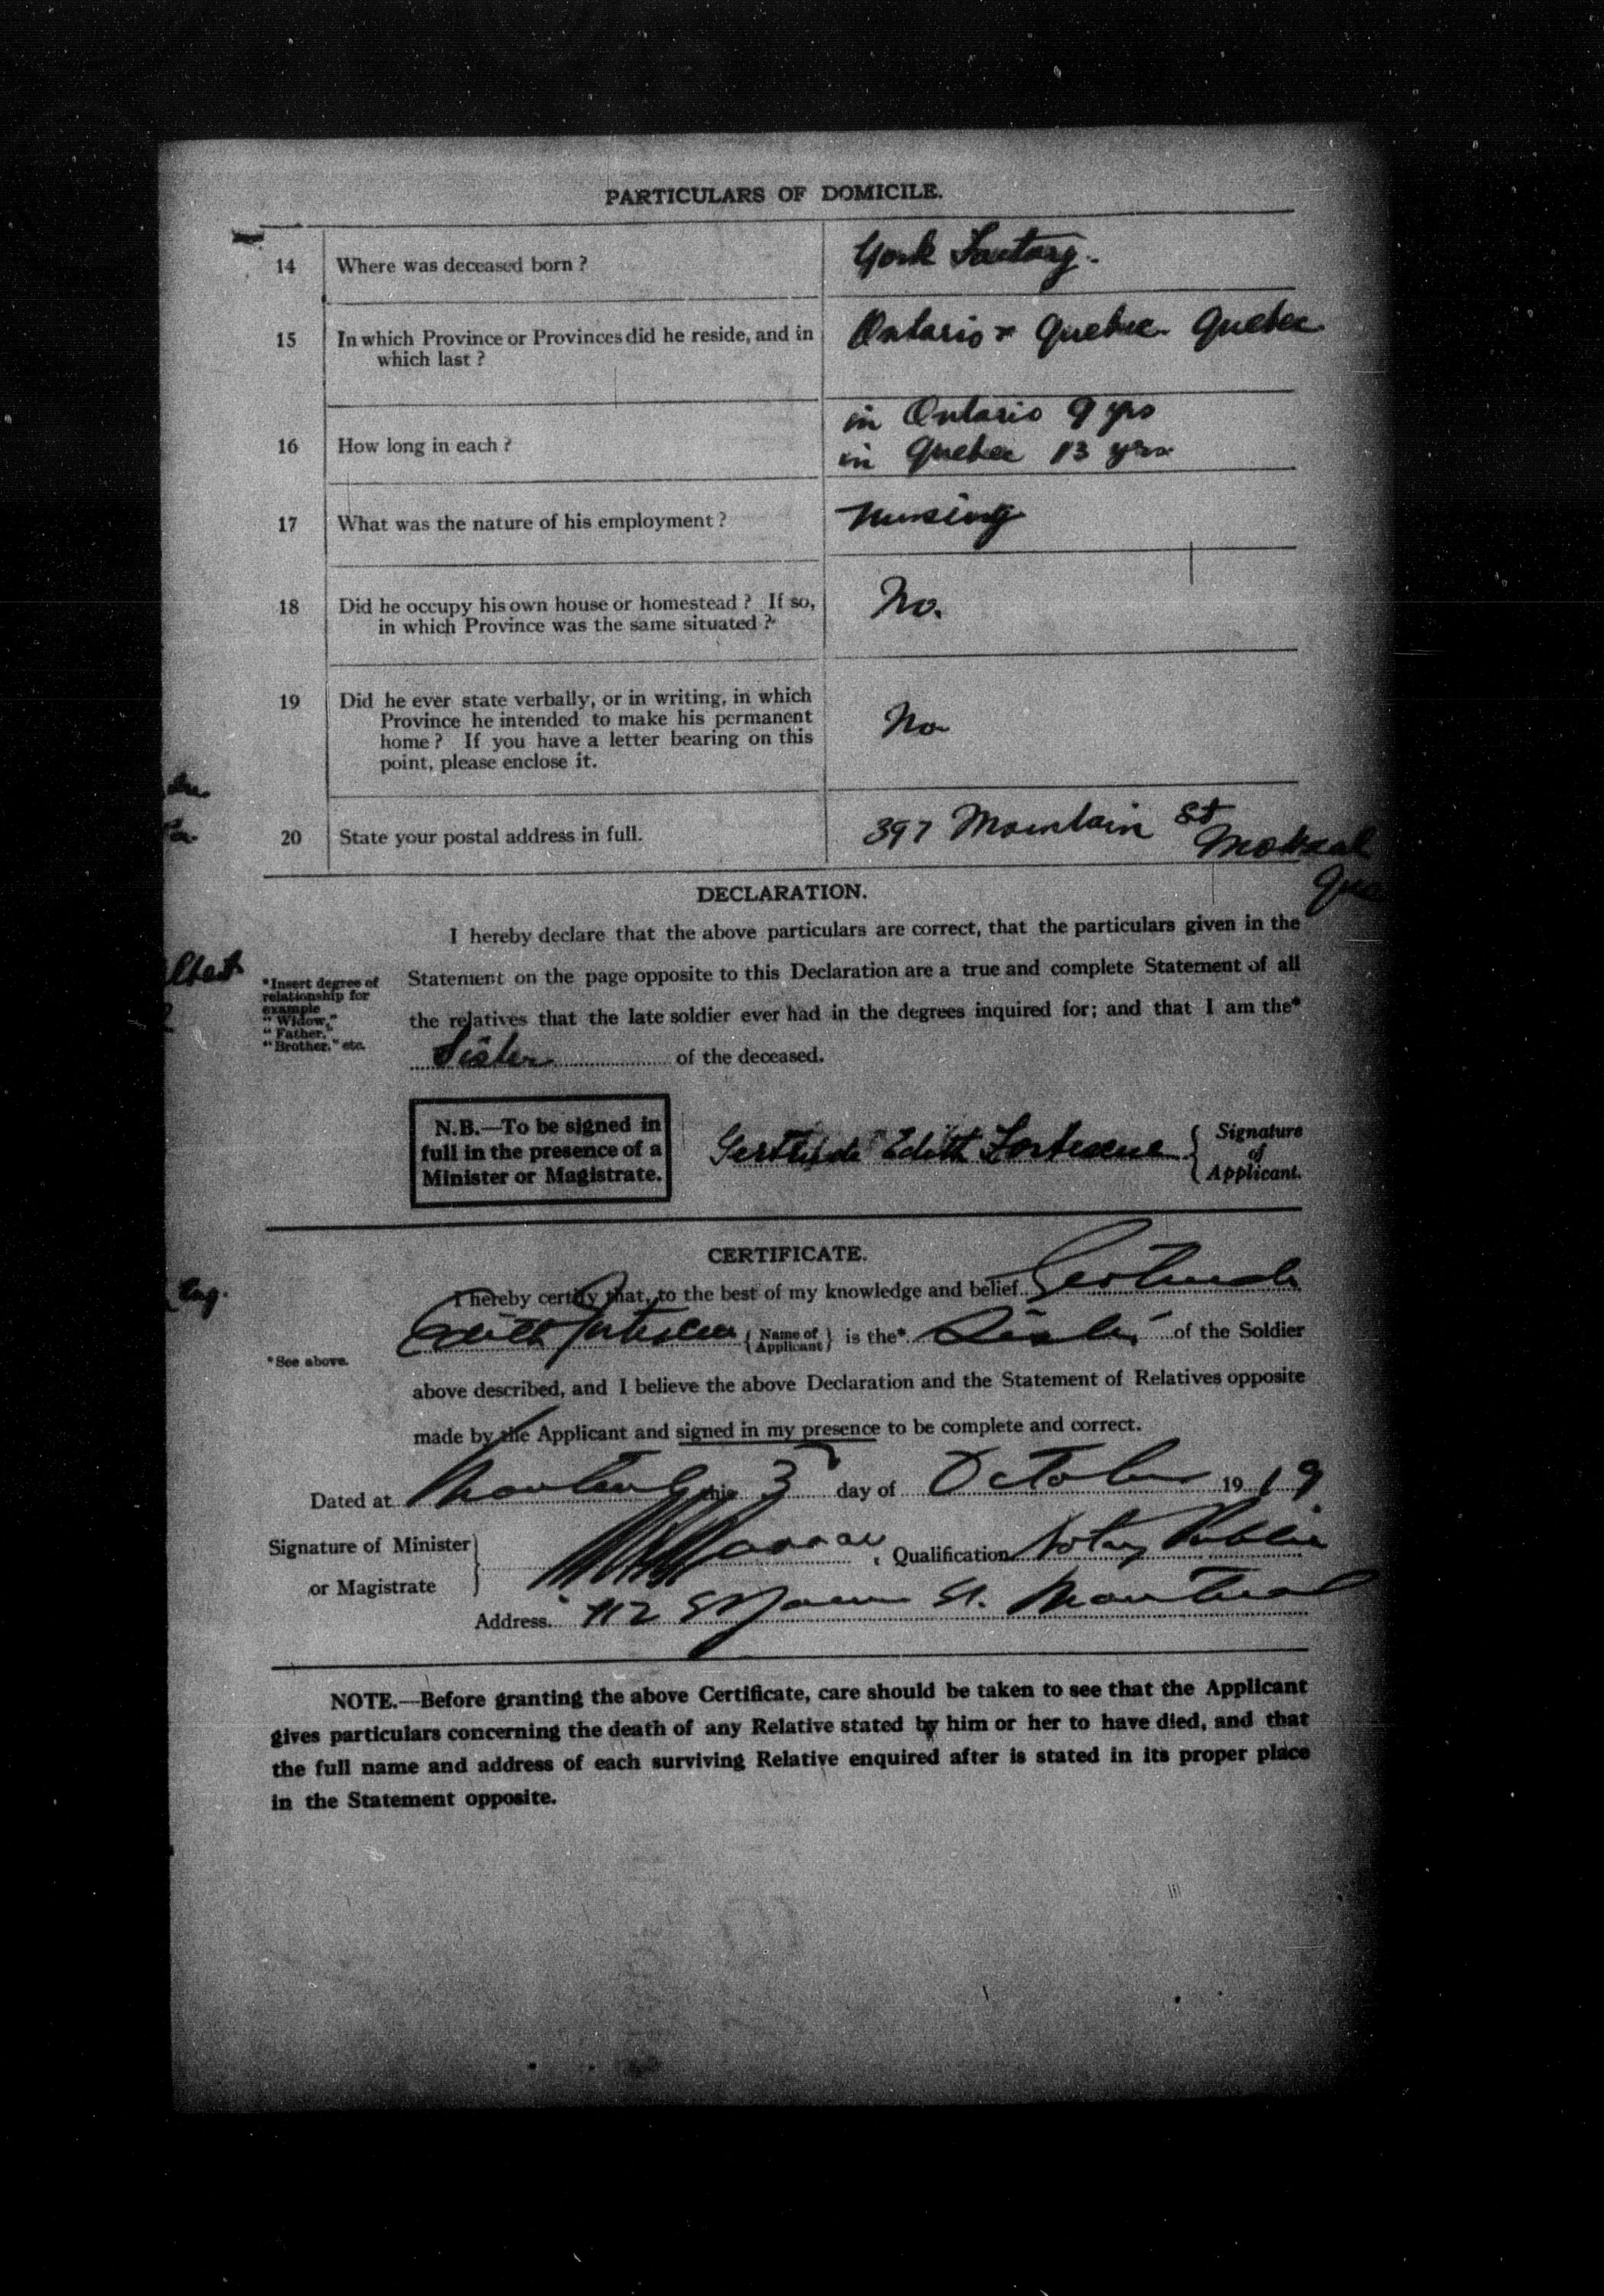 PARTICULARS OF DOMICILE.
14 Where was deceased born ? York Factory.
15 In which Province or Provinces did he reside, and in Ontario & Quebec. Quebec
which last ?
in Ontario 9 yrs
16 How long in each ?
in Quebec 13 yrs
17 What was the nature of his employment ? Nursing
18 Did he occupy his own house or homestead ? If so, No.
in which Province was the same situated ?
19 Did he ever state verbally, or in writing, in which
Province he intended to make his permanent No
home ? If you have a letter bearing on this
point, please enclose it.
20 State your postal address in full. 397 Mountain St
Motreal
Que
DECLARATION.
I hereby declare that the above particulars are correct, that the particulars given in the
Statement on the page opposite to this Declaration are a true and complete Statement of all
the relatives that the late soldier ever had in the degrees inquired for; and that I am the*
*Insert degree of
relationship for
example
" Widow,"
" Father,"
" Brother," etc.
Sister of the deceased.
N.B.—To be signed in
full in the presence of a
Minister or Magistrate.
Gertrude Edith
Signature
of
Applicant.
CERTIFICATE.
I hereby certify that, to the best of my knowledge and belief Gertrude
Edith { Name of Applicant } is the* Sister of the Soldier
*See above.
above described, and I believe the above Declaration and the Statement of Relatives opposite
made by the Applicant and signed in my presence to be complete and correct.
Dated at Montreal this 3 day of October 1919
Signature of Minister
or Magistrate
Qualification Notary Public
Address. 112 St. St. Montreal
NOTE.—Before granting the above Certificate, care should be taken to see that the Applicant
gives particulars concerning the death of any Relative stated by him or her to have died, and that
the full name and address of each surviving Relative enquired after is stated in its proper place
in the Statement opposite.